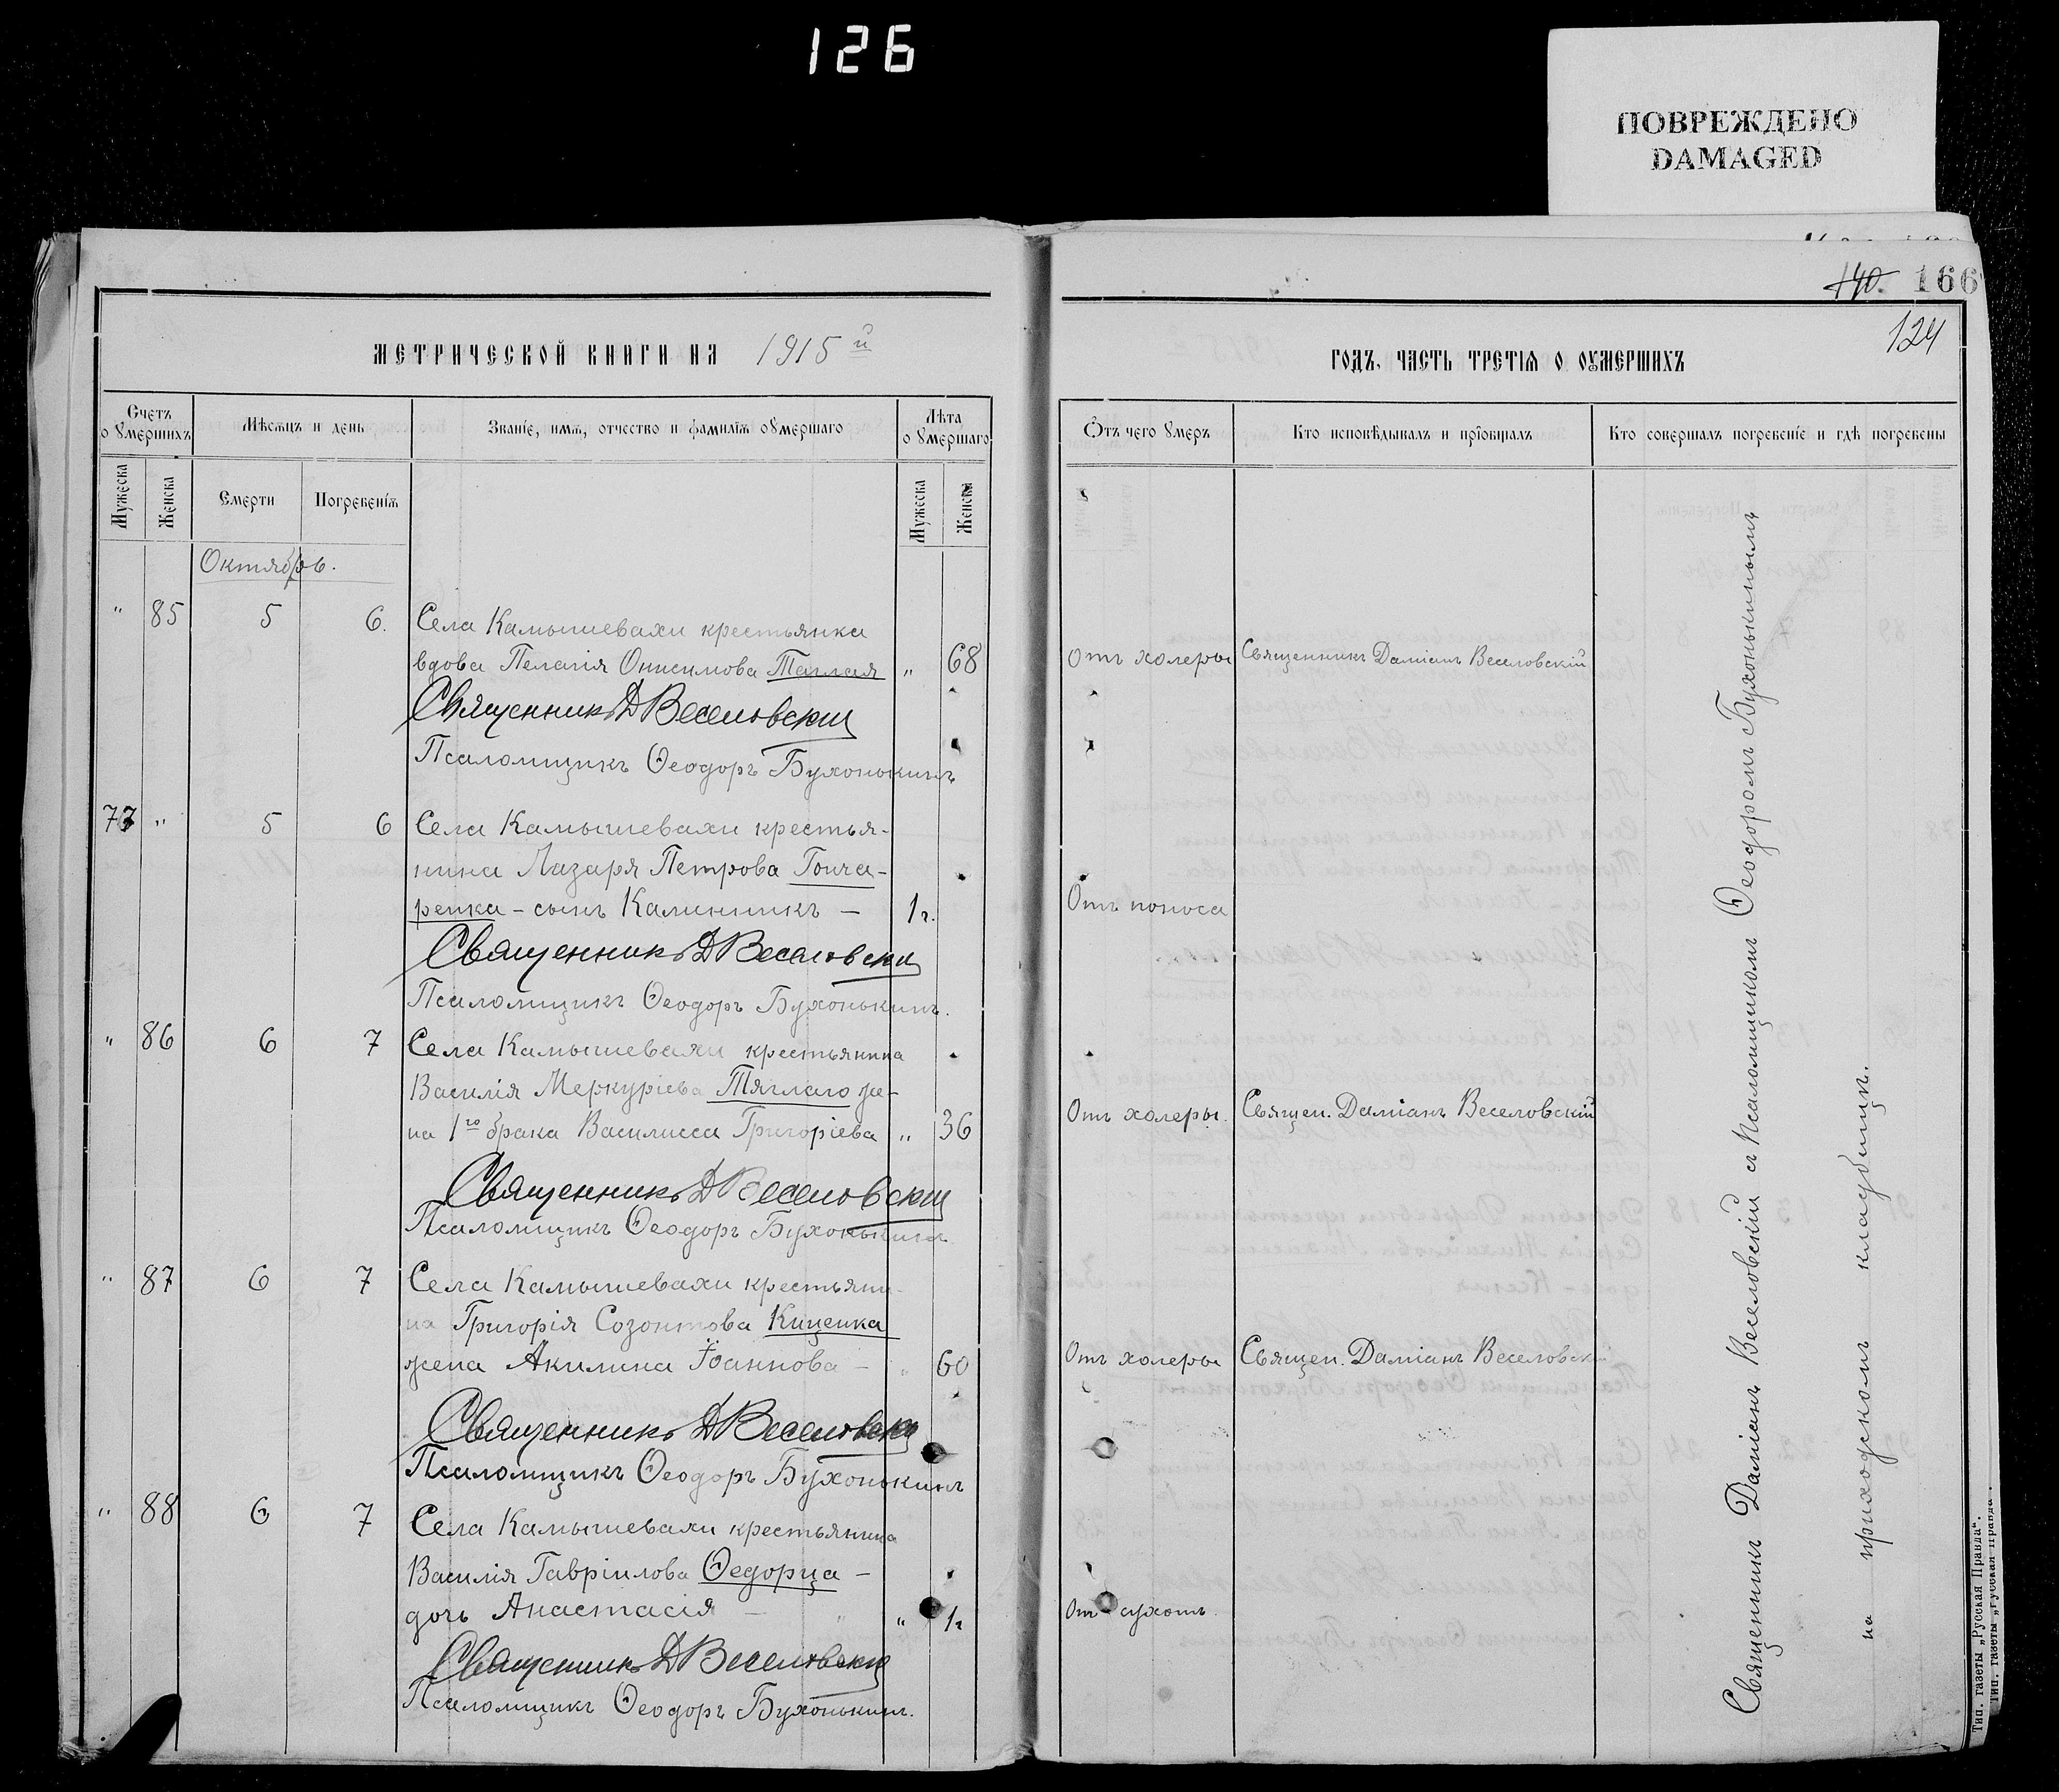 126
ПОВРЕЖДЕНО
DAMAGED
140. 166
124
МЕТРИЧЕСКОЙ КНИГИ НА 1915й
ГОДЪ, ЧАСТЬ ТРЕТІѦ О ОУМЕРШИХЪ
Счетъ о умершихъ
Мѣсѧцъ и день
Званіе, имѧ, отчество и фамиліѧ оумершаго
Лѣта оумершаго
Ѿтъ чего умеръ
Кто исповѣдывалъ и пріобщалъ
Кто совершалъ погребеніе и гдѣ погребены
Мужеска
Женска
Смерти
Погребеніѧ
Мужеска
Женска
Октябрь.
" 85 5 6. Села Камышевахи крестьянка
вдова Пелагія Онисимова Таглая " 68 Отъ холеры Священникъ Даміанъ Веселовскій
Священникъ Д Веселовскій
Псаломщикъ Ѳеодоръ Бухонькинъ
77 " 5 6 Села Камышевахи крестья-
нина Лазаря Петрова Гонча-
ренка - сынъ Калинникъ - 1 г. Отъ поноса
Священникъ Д Веселовскій
Псаломщикъ Ѳеодоръ Бухонькинъ.
" 86 6 7 Села Камышевахи крестьянина
Василія Меркуріева Тяглаго же-
на 1го брака Василисса Григоріева " 36 Отъ холеры. Священ. Даміанъ Веселовскій
Священникъ Д Веселовскій
Псаломщикъ Ѳеодоръ Бухонькинъ
" 87 6 7 Села Камышевахи крестьяни-
на Григорія Созонтова Кищенка
жена Акилина Іоаннова - " 60 Отъ холеры Священ. Даміанъ Веселовскій
Священникъ Д Веселовскій
Псаломщикъ Ѳеодоръ Бухонькинъ
" 88 6 7 Села Камышевахи крестьянина
Василія Гавріилова Ѳедорца -
дочь Анастасія - " 1 г Отъ сухотъ.
Священникъ Д Веселовскій
Псаломщикъ Ѳеодоръ Бухонькинъ.
Священникъ Даміанъ Веселовскій съ Псаломщикомъ Ѳеодоромъ Бухонькинымъ
на приходскомъ кладбищѣ.
Тип. газеты „Русская Правда".
Тип. газеты „Русская Правда".